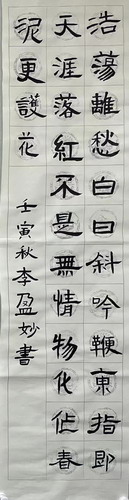 浩蕩離愁白日斜吟鞭東指即
天涯落紅不是無情物化作春
泥更護花
壬寅秋李盈妙書